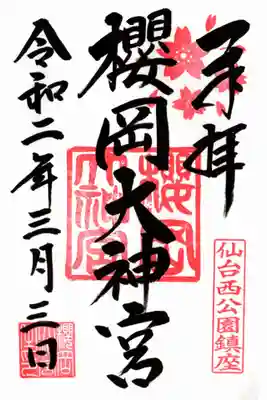 奉拝
櫻岡大神宮
令和二年三月三日
仙台西公園鎮座
櫻岡大神宮